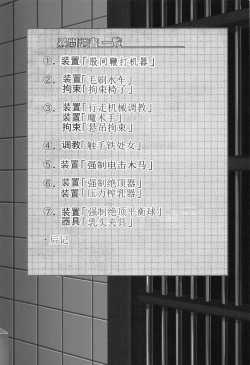 ①. 装置「股间鞭打机器」
②. 装置「毛刷水车」
拘束「拘束椅子」
③. 装置「行走机械调教」
装置「魔术手」
拘束「悬吊拘束」
④. 调教「触手铁处女」
⑤. 装置「强制电击木马」
⑥. 装置「强制绝顶器」
装置「压力榨乳器」
⑦. 装置「强制绝顶平衡球」
器具「乳头夹具」
·后记